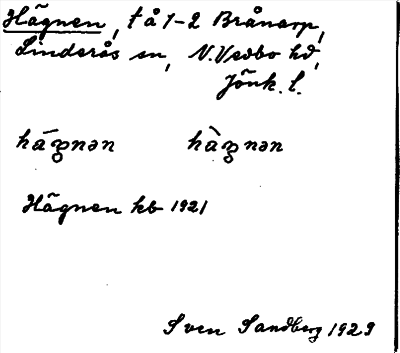 Hägnen, t å 1-2 Brånarp,
Linderås sn, N. Vedbo hd,
Jönk. l.
hágnən hàgnən
Hägnen kb 1921
Sven Sandberg 1929